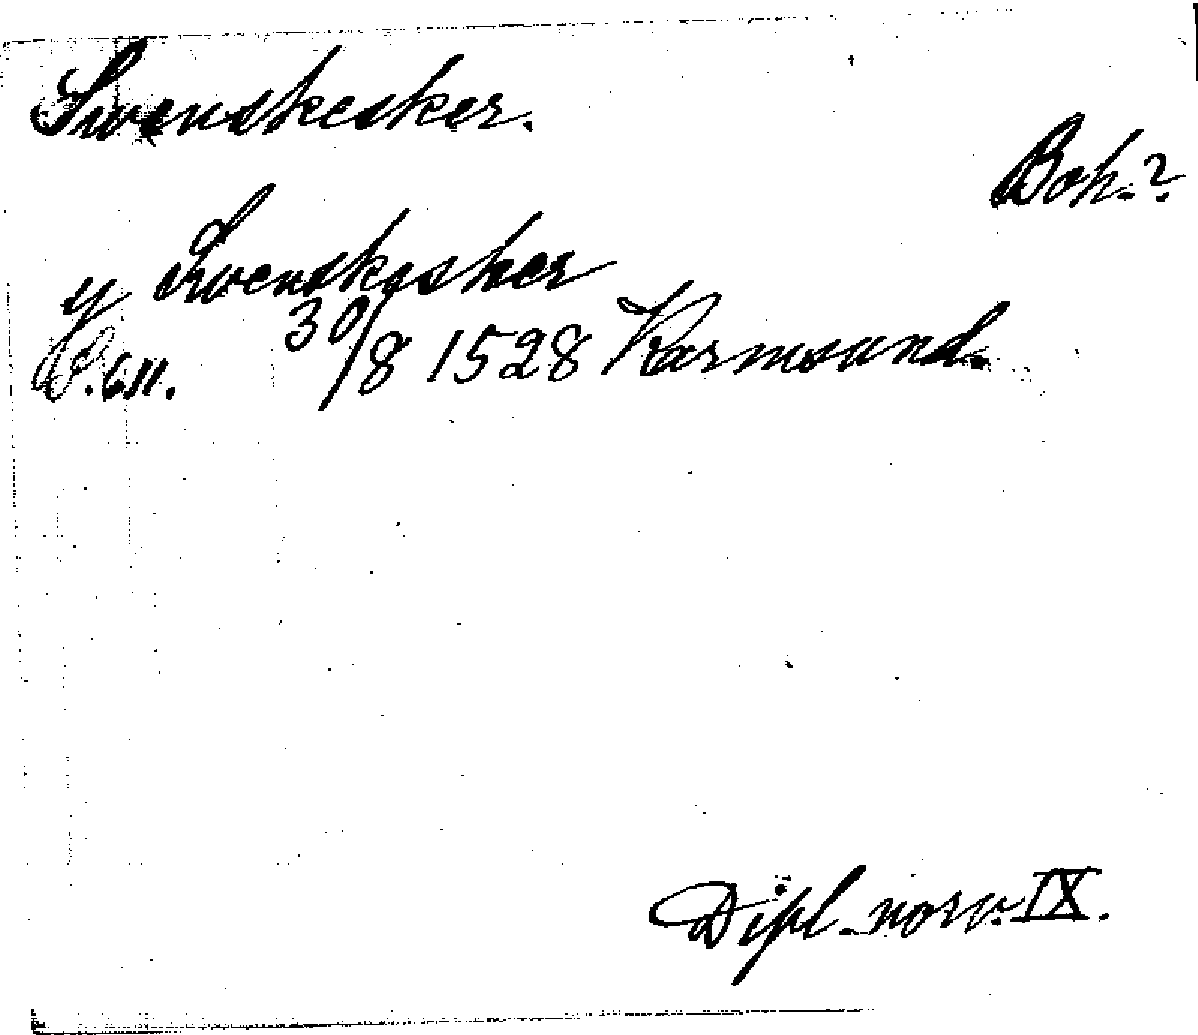 Swenskesker.
Boh.?
y Swenskesker
S. 611. 30/8 1528 Karmsund.
Dipl. norv. IX.